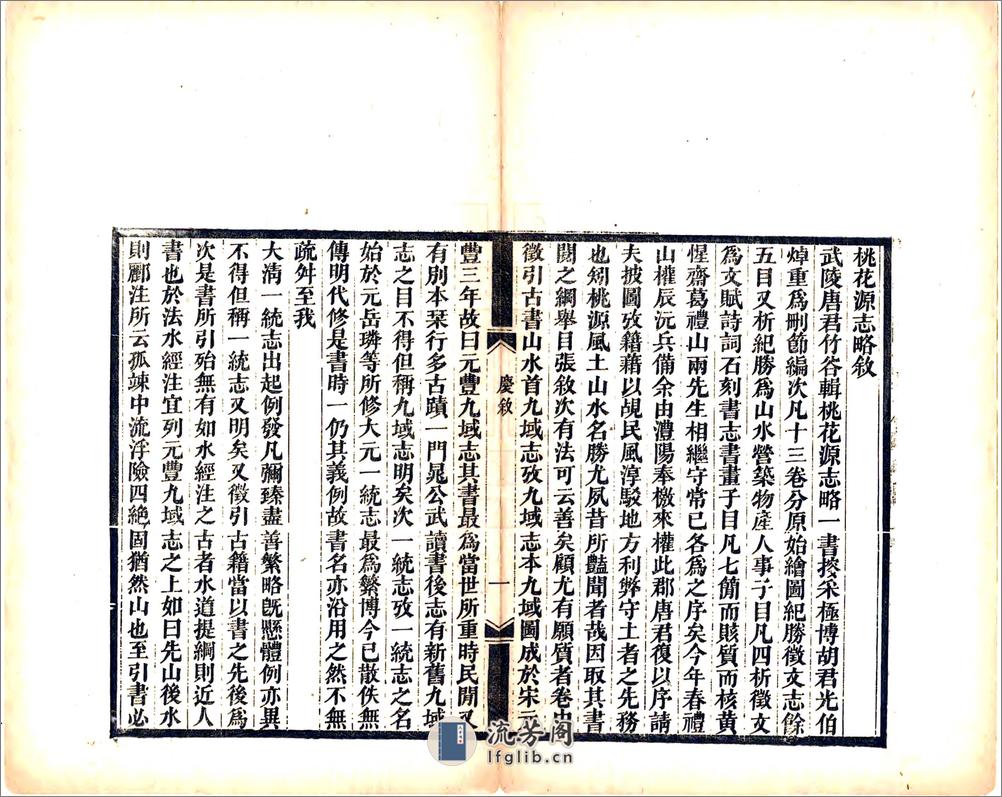 桃花源志略敘
武陵唐君竹谷輯桃花源志略一書搜采極博胡君光伯
焯重為刪節編次凡十三卷分原始繪圖紀勝徵文志餘
五目又析紀勝為山水營築物產人事子目凡四析徵文
為文賦詩詞石刻書志書畫子目凡七簡而賅質而核黃
惺齋葛禮山兩先生相繼守常已各為之序矣今年春禮
山權辰沅兵備余由澧陽奉檄來權此郡唐君復以序請
夫披圖攷籍藉以覘民風淳駁地方利弊守土者之先務
也矧桃源風土山水名勝尤夙昔所豔聞者哉因取其書
閱之綱舉目張敘次有法可云善矣顧尤有願質者卷中
徵引古書山水首九域志攷九域志本九域圖成於宋元
慶敘
一
豐三年故曰元豐九域志其書最為當世所重時民間又
有別本栞行多古蹟一門晁公武讀書後志有新舊九域
志之目不得但稱九域志明矣次一統志攷一統志之名
始於元岳璘等所修大元一統志最為繁博今已散佚無
傳明代修是書時一仍其義例故書名亦沿用之然不無
疏舛至我
大清一統志出起例發凡彌臻盡善繁略旣懸體例亦異
不得但稱一統志又明矣又徵引古籍當以書之先後為
次是書所引殆無有如水經注之古者水道提綱則近人
書也於法水經注宜列元豐九域志之上如曰先山後水
則酈注所云孤竦中流浮險四絕固猶然山也至引書必
流芳閣
lfglib.cn